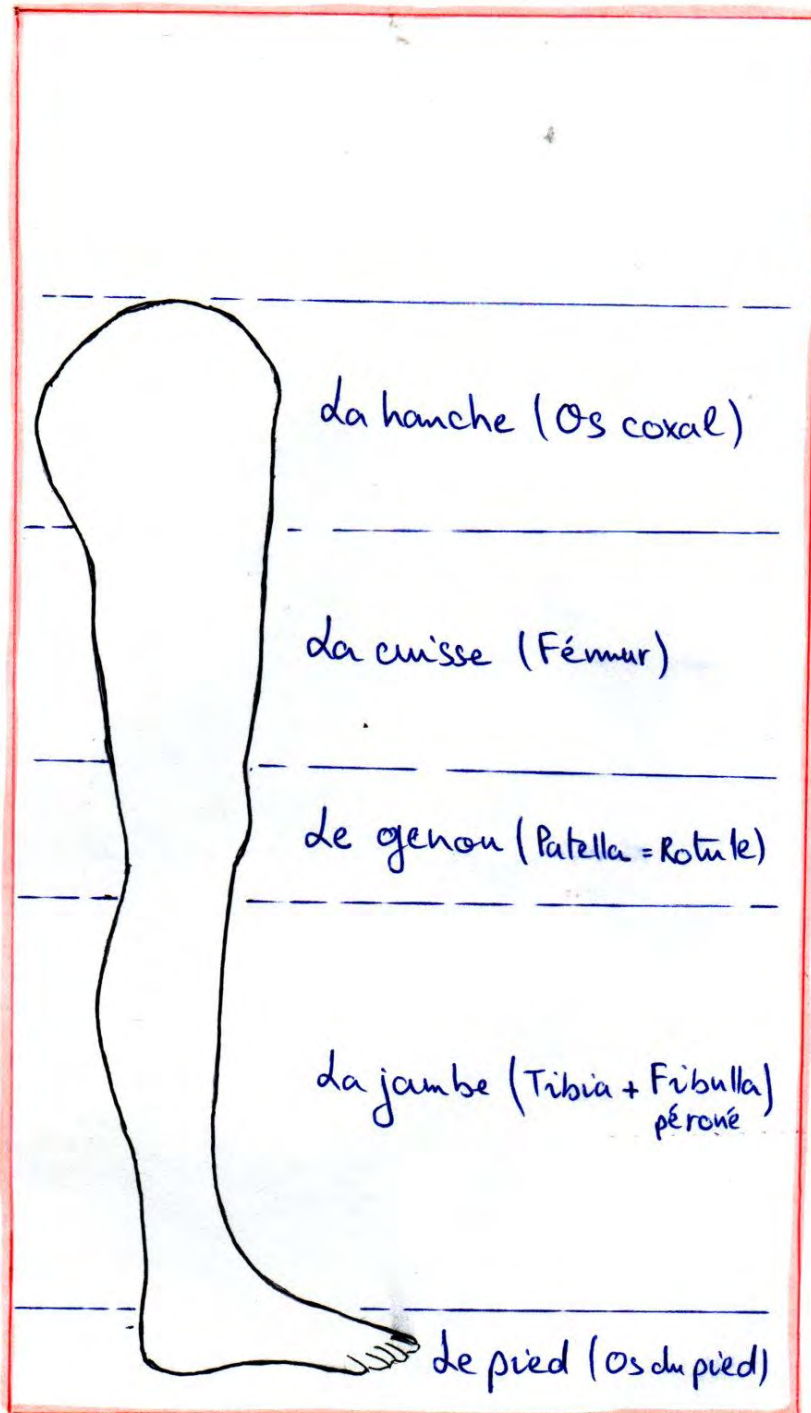 La hanche (Os coxal)
La cuisse (Fémur)
Le genou (Patella = Rotule)
La jambe (Tibia + Fibulla)
péroné
Le pied (Os du pied)